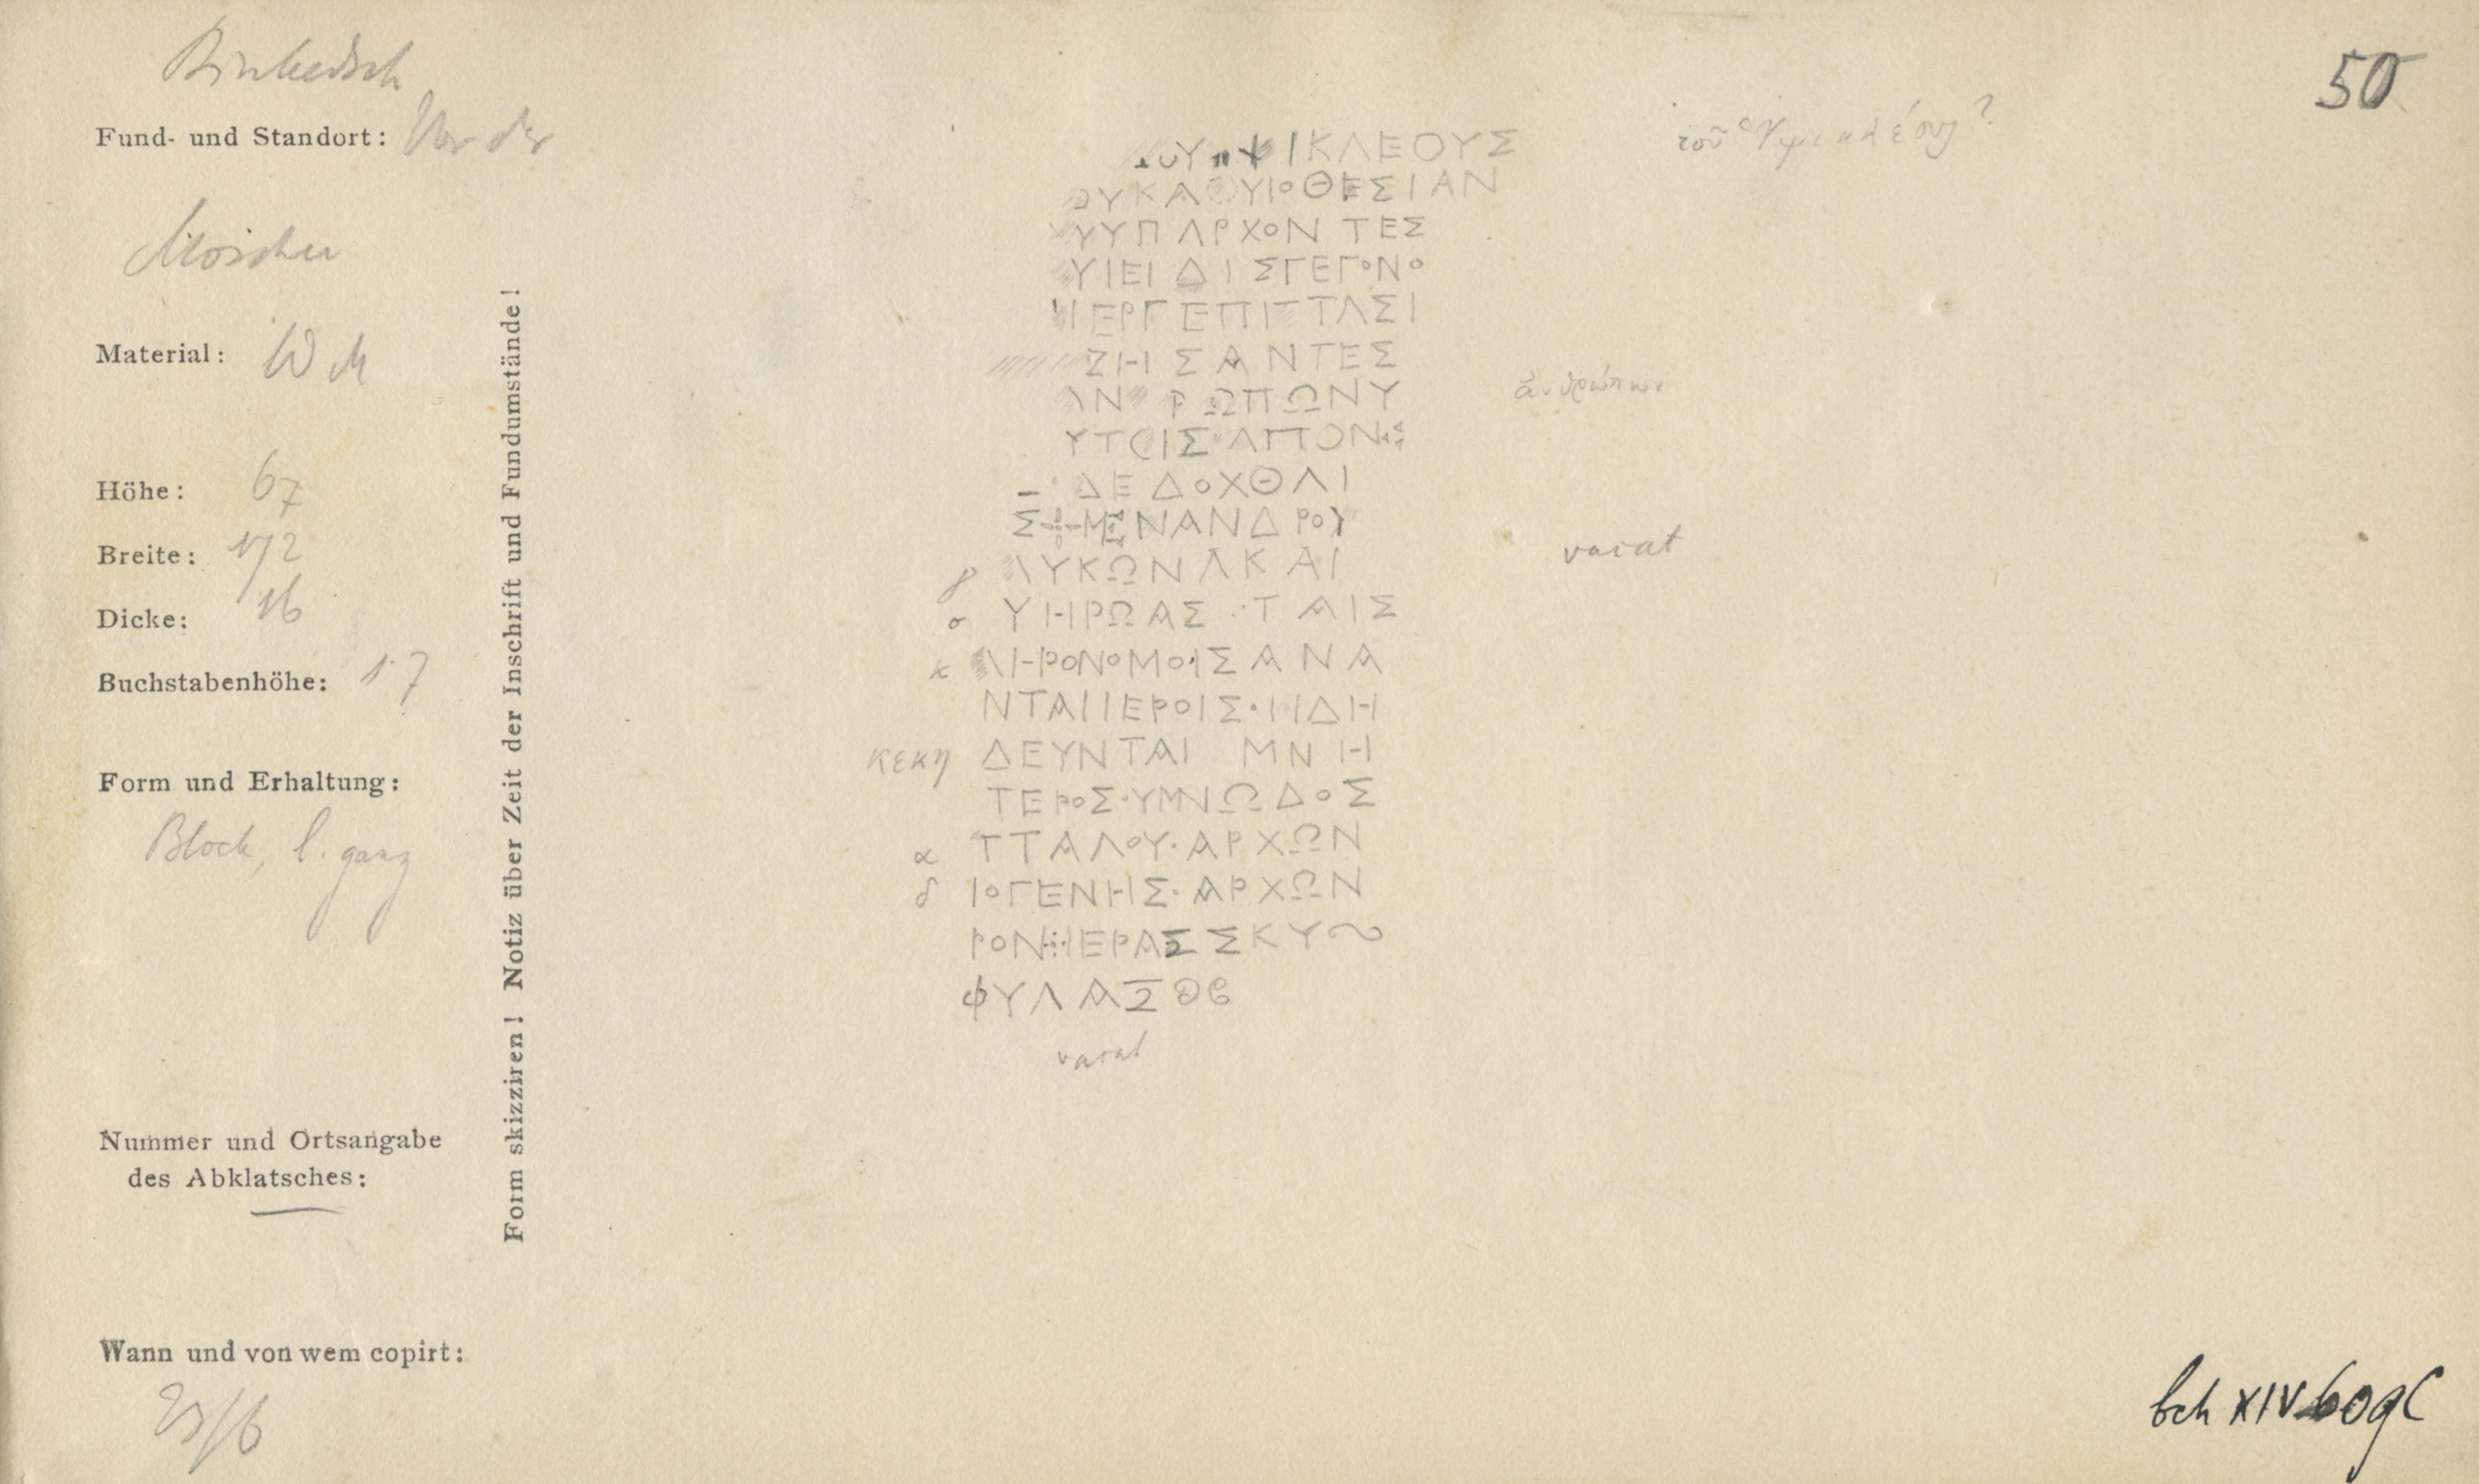 50
Fund- und Standort: Vor der
Moschee
Material: W M
Höhe: 67
Breite: 172
Dicke: 16
Buchstabenhöhe: 1·7
Form und Erhaltung:
Block, l. ganz
Nummer und Ortsangabe
des Abklatsches:
Wann und von wem copirt:
23/6
Form skizziren! Notiz über Zeit der Inschrift und Fundumstände!
ΙΚΛΕΟΥΣ τοῦ Ὑψικλέους?
ΥΚΑ ΥΙΟΘΕΣΙΑΝ
ΥΥΠΑΡΧΟΝΤΕΣ
ΥΙΕΙΔΙΣΓΕΓΟΝΟ
ΕΡΓΕΠΙΣΤΑΣΙ
ΖΗΣΑΝΤΕΣ
ΑΝ ΡΩΠΩΝΥ ἀνθρώπων
ΥΤΟΙΣ ΑΠΟΝ
ΔΕΔΟΧΘΑΙ
Σ ΜΕΝΑΝΔΡΟΥ vacat
ΛΥΚΩΝΑΚΑΙ
ο ΥΗΡΩΑΣ ΤΑΙΣ
κ ΛΗΡΟΝΟΜΟΙΣΑΝΑ
ΝΤΑΙΙΕΡΟΙΣ·ΗΔΗ
κεκη ΔΕΥΝΤΑΙ ΜΝΗ
ΤΕΡΟΣ·ΥΜΝΩΔΟΣ
α ΤΤΑΛΟΥ·ΑΡΧΩΝ
δ ΙΟΓΕΝΗΣ·ΑΡΧΩΝ
ΡΟΝ ΙΕΡΑΣΣΚΥ
ΦΥΛΑΣΘΕ
vacat
bch XIV 609